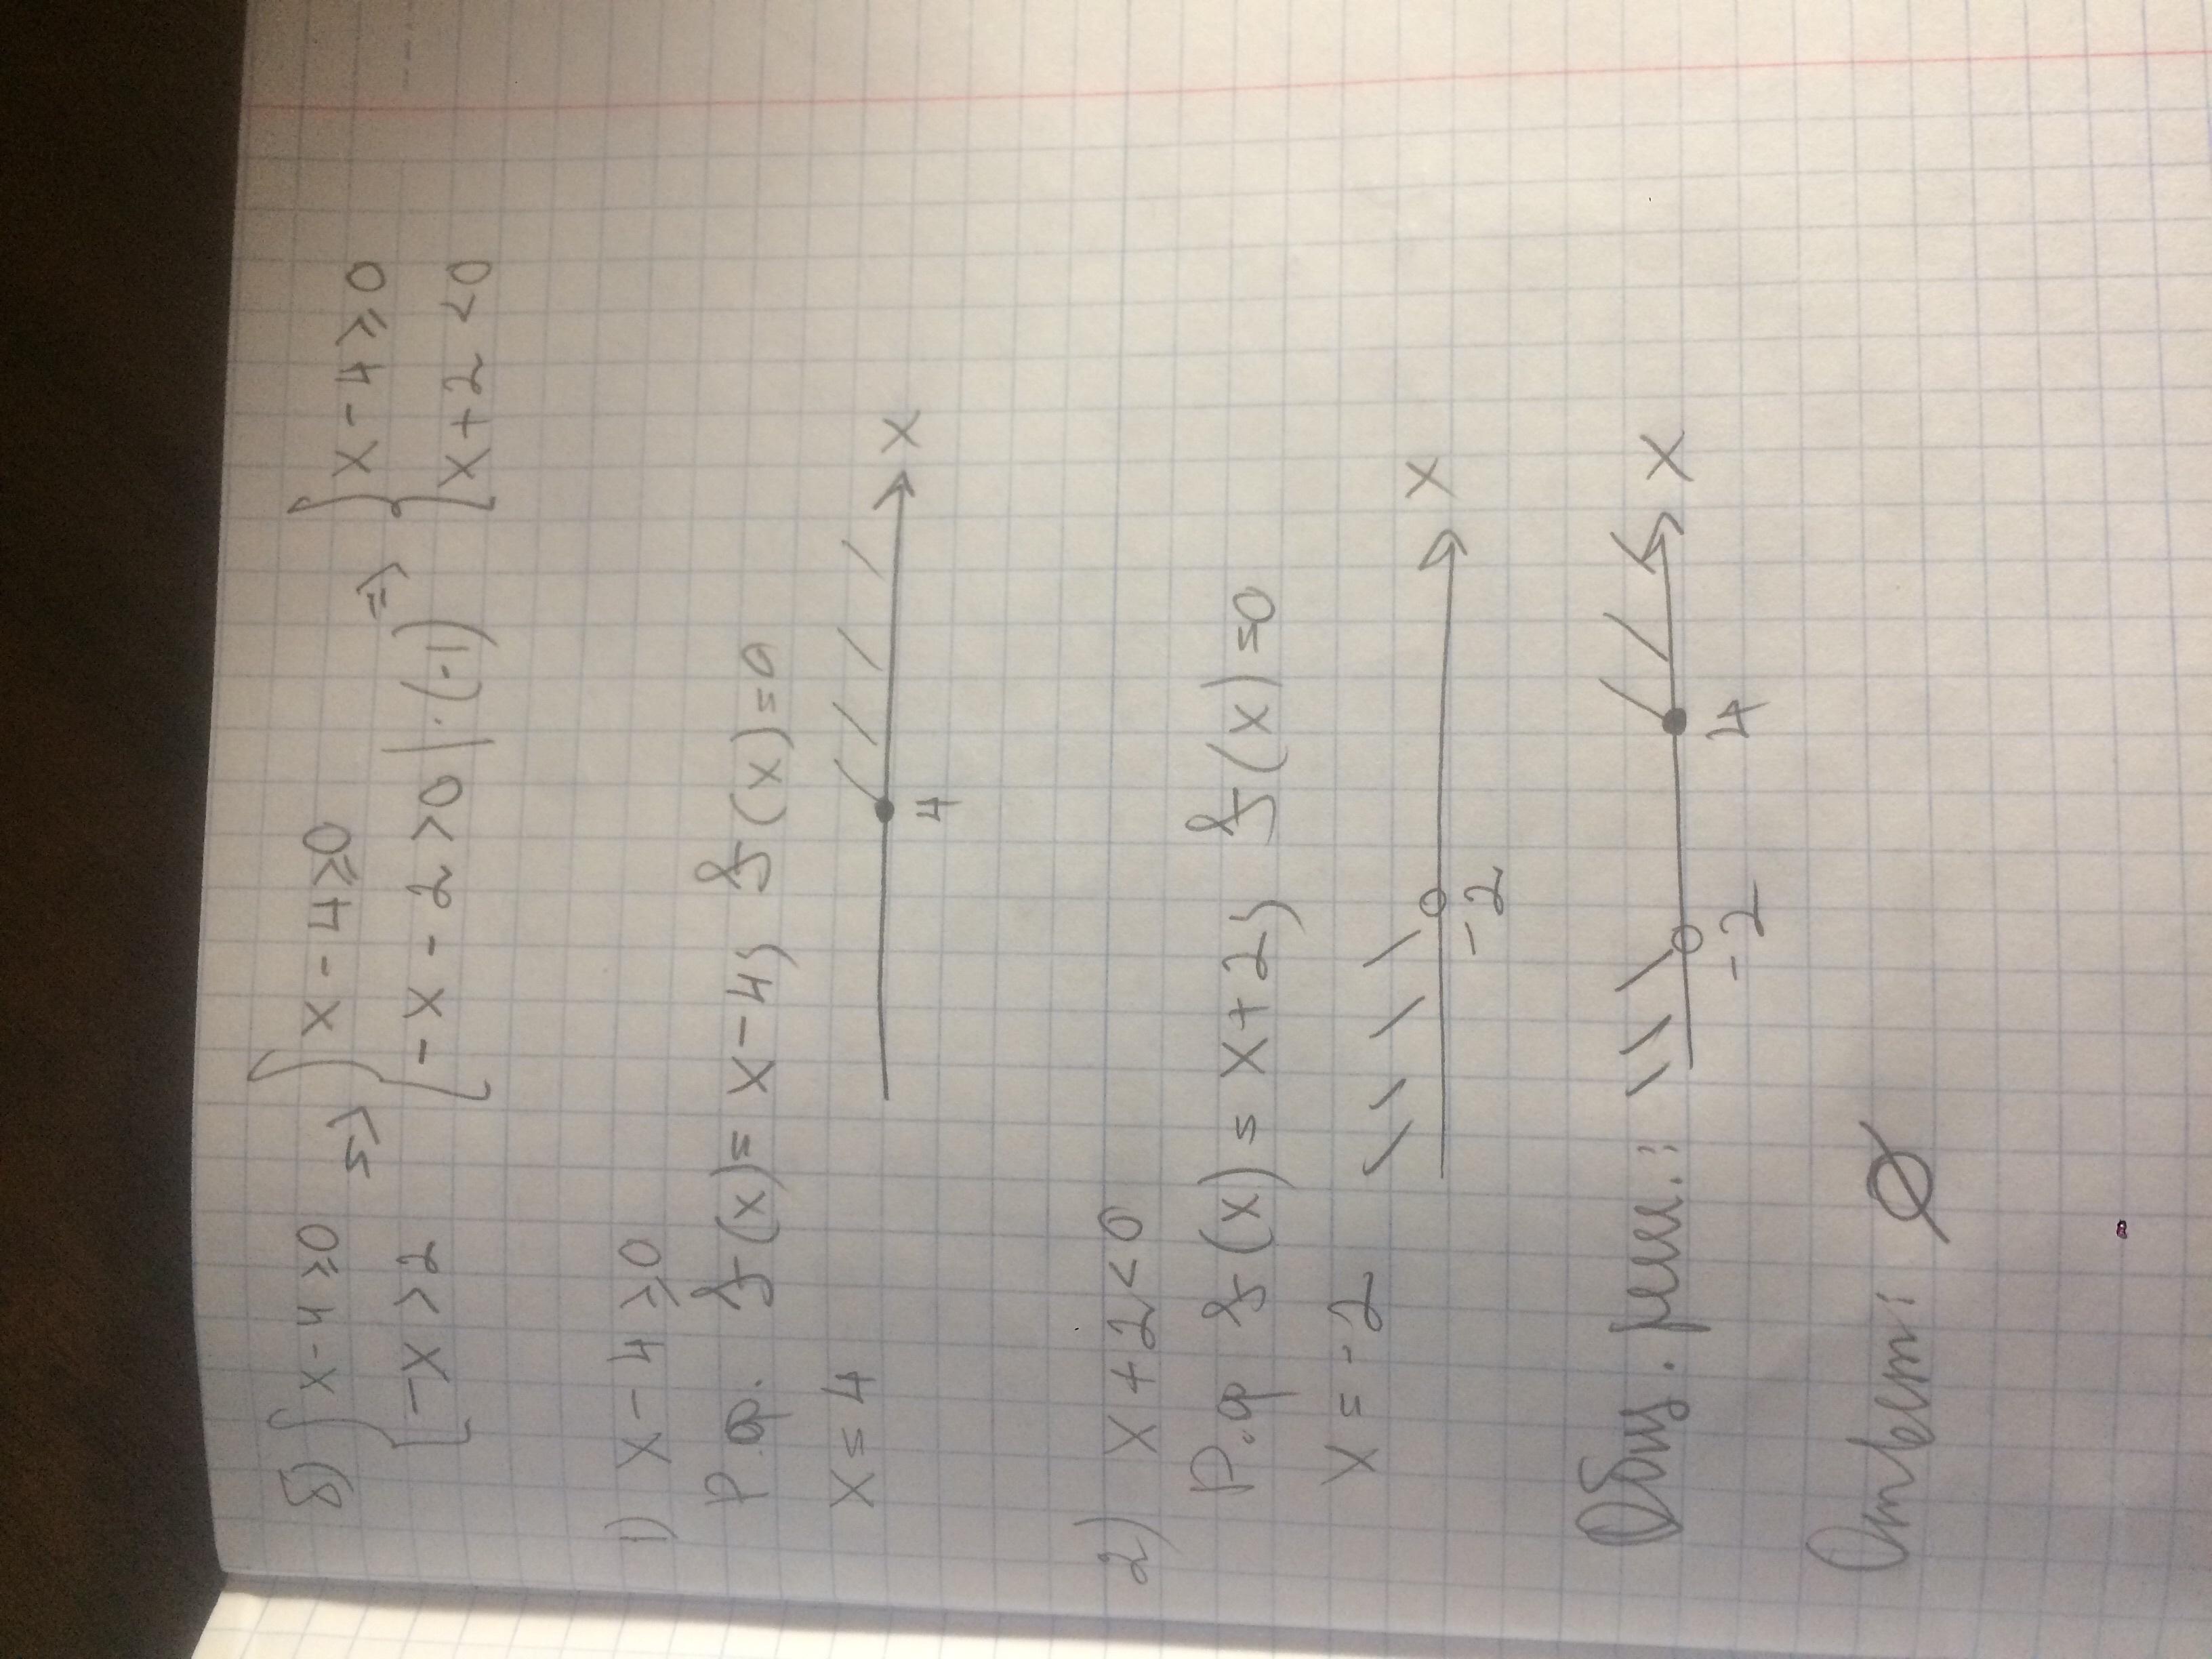 б) { x - 4 ≥ 0 => { x - 4 ≥ 0 => { x - 4 ≥ 0
- x > 2 - x - 2 > 0 | · (-1) x + 2 < 0
1) x - 4 ≥ 0
Р.ф. f(x) = x - 4; f(x) = 0
x = 4
4 x
2) x + 2 < 0
Р.ф f(x) = x + 2; f(x) = 0
x = -2
-2 x
Общ. реш.:
-2 4 x
Ответ: ∅